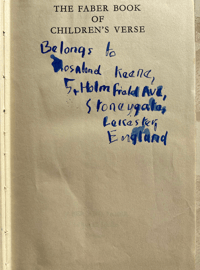 THE FABER BOOK
OF
CHILDREN'S VERSE
Belongs to
Rosalind Keene,
5, Holmfield Ave,
Stoneygate,
Leicester,
England